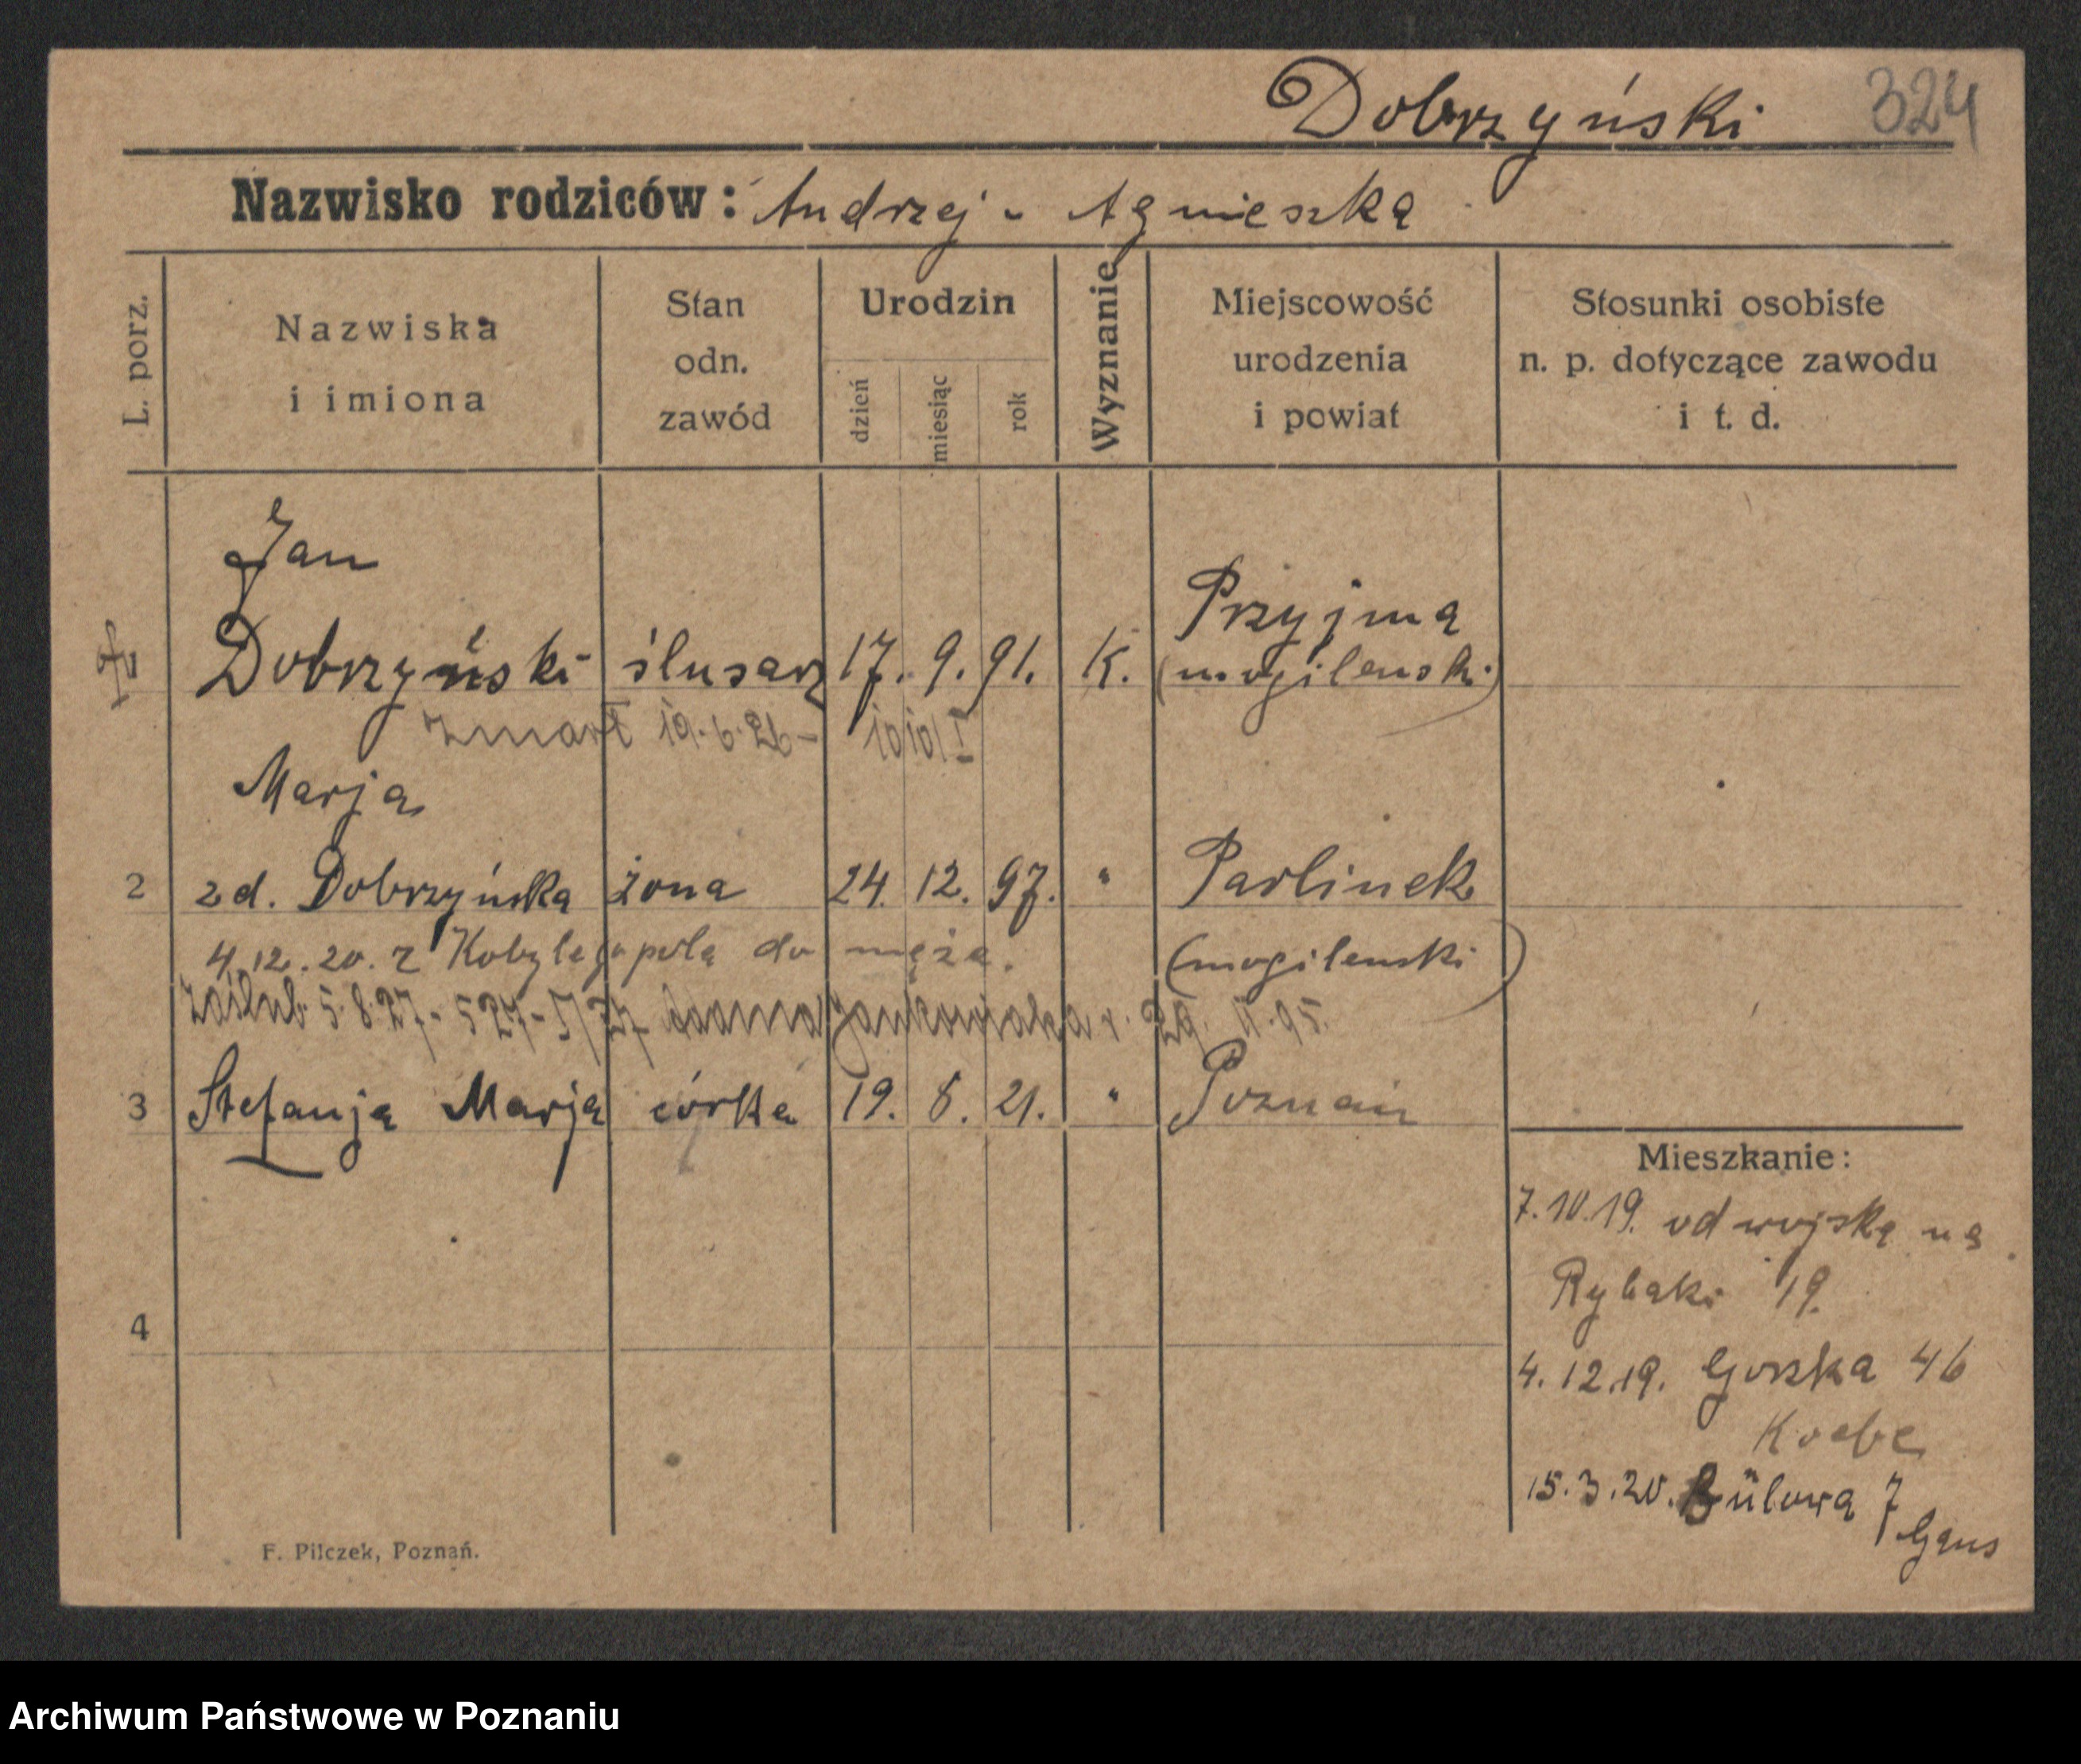 Dobrzyński 324
Nazwisko rodziców: Andrzej - Agnieszka
L. porz.
Nazwiska
i imiona
Stan
odn.
zawód
Urodzin
dzień
miesiąc
rok
Wyznanie
Miejscowość
urodzenia
i powiat
Stosunki osobiste
n. p. dotyczące zawodu
i t. d.
Jan
Dobrzyński ślusarz 17. 9. 91. K. Przyjma
(mogilenski)
zmarł 19.6.26 -
Marja
2 zd. Dobrzyńska żona 24. 12. 97. " Parlinek
(mogilenski)
4.12.20. z Kobylegopola do męża.
Zaślub. 5.8.27 - 527 - Adama Jankowiaka r. 29. 11. 95.
3 Stefanja Marja córka 19. 8. 21. " Poznań
4
Mieszkanie:
7.10.19. od wojska na
Rybaki 19.
4.12.19. Gorska 46
Koebe
15.3.20. Bülowa 7
Gans
F. Pilczek, Poznań.
Archiwum Państwowe w Poznaniu